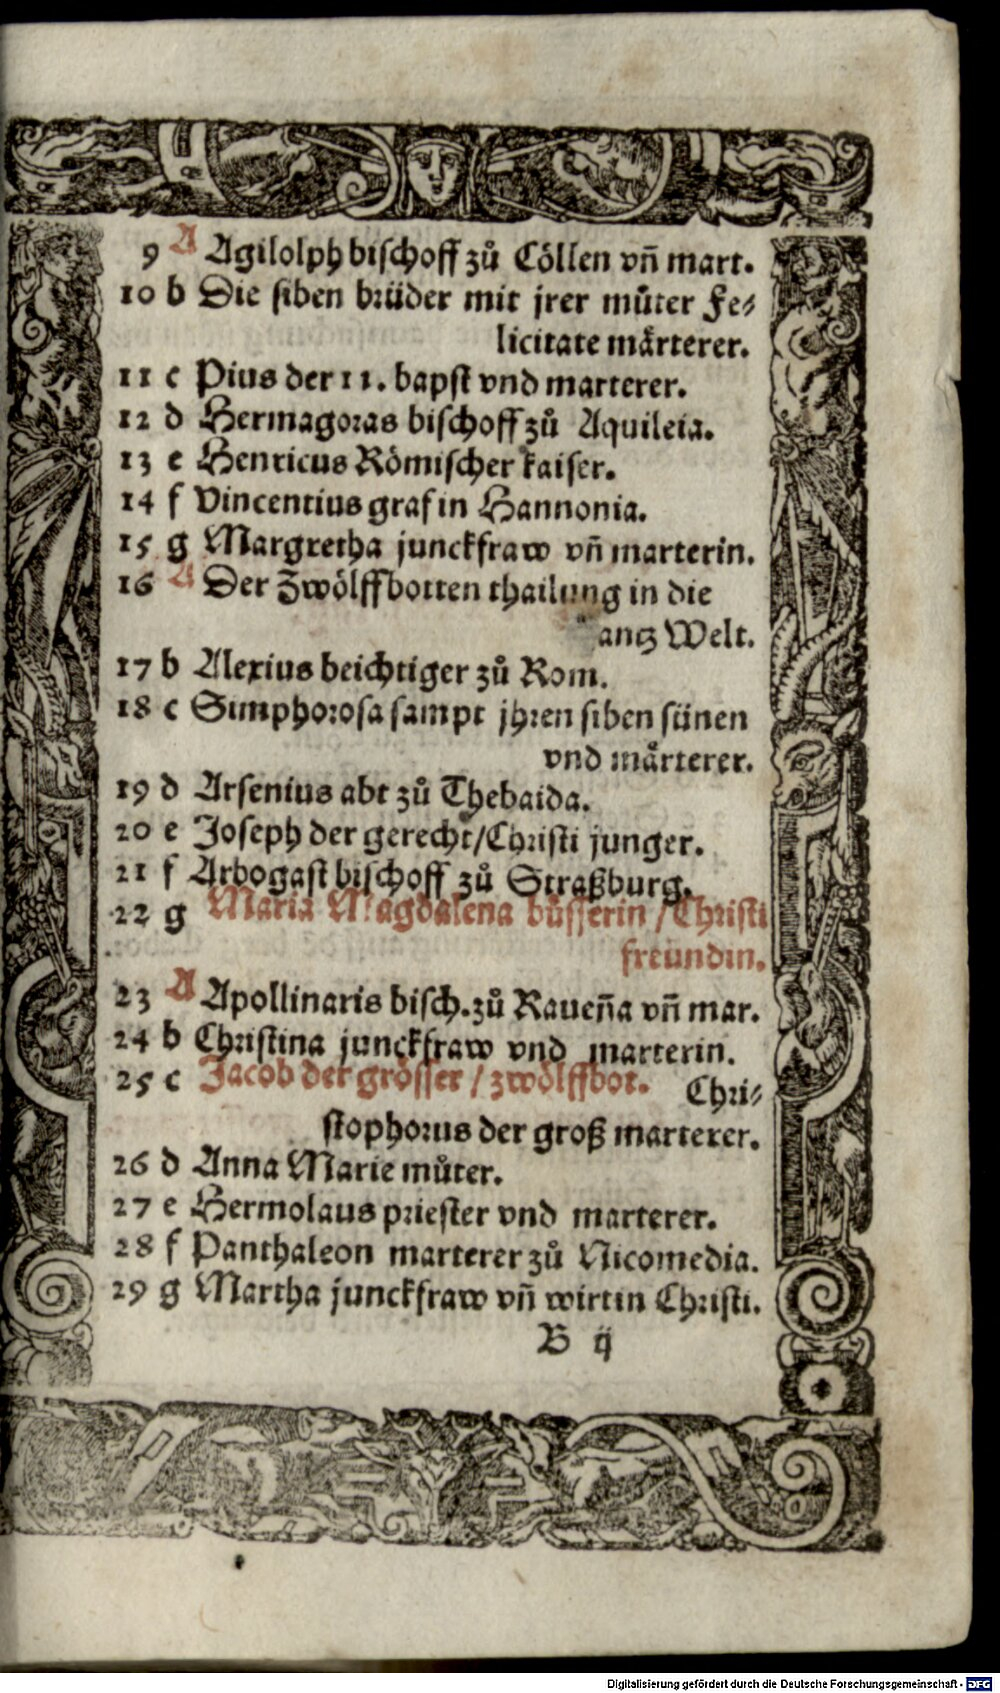 9 A Agilolph bischoff zů Cöllen vñ mart.
10 b Die siben brüder mit jrer můter Fe⸗
licitate mårterer.
11 c Pius der 11. bapst vnd marterer.
12 d Hermagoras bischoff zů Aquileia.
13 e Henricus Römischer kaiser.
14 f Vincentius graf in Hannonia.
15 g Margretha junckfraw vñ marterin.
16 A Der Zwölffbotten thailung in die
antz Welt.
17 b Alexius beichtiger zů Rom.
18 c Simphorosa sampt jhren siben sünen
vnd mårterer.
19 d Arsenius abt zů Thebaida.
20 e Joseph der gerecht/Christi junger.
21 f Arbogast bischoff zů Straßburg.
22 g Maria Magdalena büsserin / Christi
freundin.
23 A Apollinaris bisch. zů Raueña vñ mar.
24 b Christina junckfraw vnd marterin.
25 c Jacob der grösser / zwölffbot. Chri⸗
stophorus der groß marterer.
26 d Anna Marie můter.
27 e Hermolaus priester vnd marterer.
28 f Panthaleon marterer zů Nicomedia.
29 g Martha junckfraw vñ wirtin Christi.
B ij
Digitalisierung gefördert durch die Deutsche Forschungsgemeinschaft - DFG